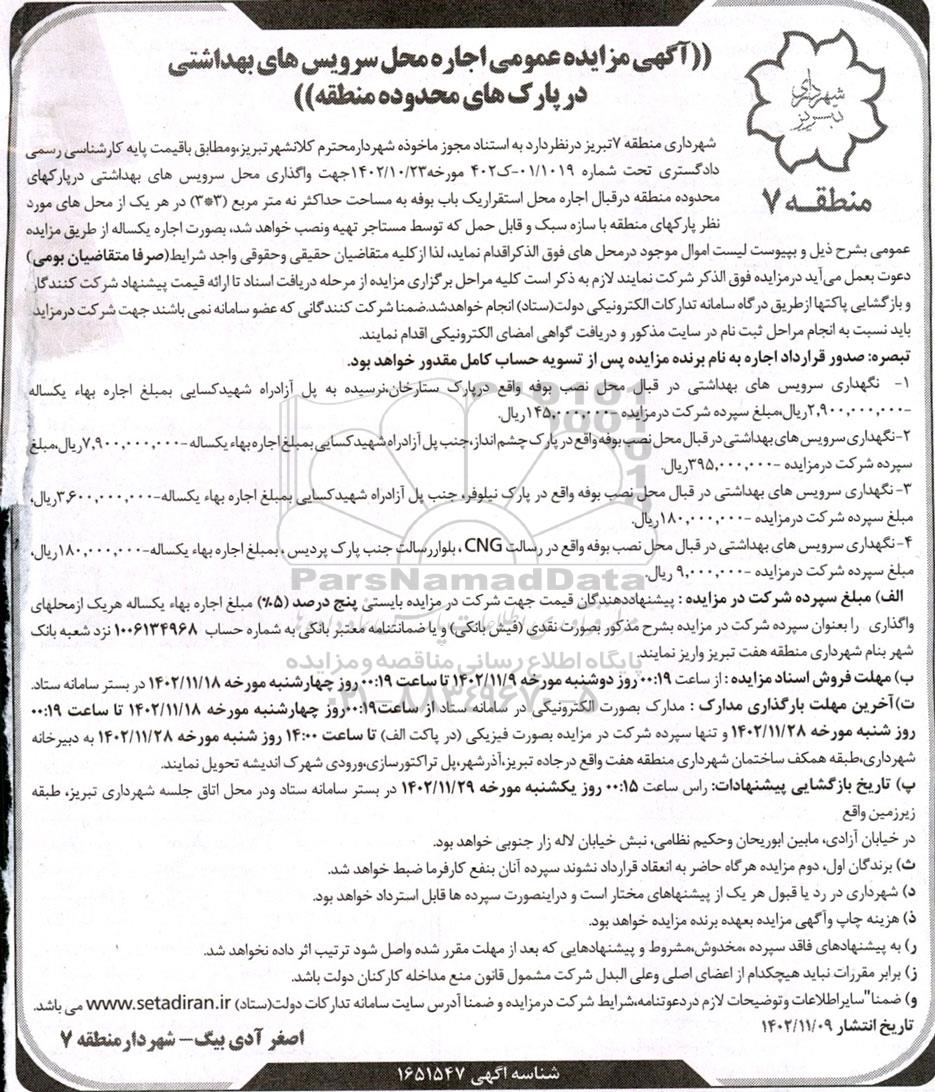 ((آگهی مزایده عمومی اجاره محل سرویس های بهداشتی
در پارک های محدوده منطقه))
شهرداری تبریز
منطقه ۷
شهرداری منطقه ۷تبریز درنظردارد به استناد مجوز ماخوذه شهردارمحترم کلانشهرتبریز،ومطابق باقیمت پایه کارشناسی رسمی
دادگستری تحت شماره ۰۱/۱۰۱۹-ک۴۰۲ مورخه۱۴۰۲/۱۰/۲۳جهت واگذاری محل سرویس های بهداشتی درپارکهای
محدوده منطقه درقبال اجاره محل استقراریک باب بوفه به مساحت حداکثر نه متر مربع (۳*۳) در هر یک از محل های مورد
نظر پارکهای منطقه با سازه سبک و قابل حمل که توسط مستاجر تهیه ونصب خواهد شد، بصورت اجاره یکساله از طریق مزایده
عمومی بشرح ذیل و بپیوست لیست اموال موجود درمحل های فوق الذکراقدام نماید، لذا ازکلیه متقاضیان حقیقی وحقوقی واجد شرایط(صرفا متقاضیان بومی)
دعوت بعمل می‌آید درمزایده فوق الذکر شرکت نمایند لازم به ذکر است کلیه مراحل برگزاری مزایده از مرحله دریافت اسناد تا ارائه قیمت پیشنهاد شرکت کنندگان
و بازگشایی پاکتها ازطریق درگاه سامانه تدارکات الکترونیکی دولت(ستاد) انجام خواهدشد.ضمنا شرکت کنندگانی که عضو سامانه نمی باشند جهت شرکت درمزاید
باید نسبت به انجام مراحل ثبت نام در سایت مذکور و دریافت گواهی امضای الکترونیکی اقدام نمایند.
تبصره: صدور قرارداد اجاره به نام برنده مزایده پس از تسویه حساب کامل مقدور خواهد بود.
۱- نگهداری سرویس های بهداشتی در قبال محل نصب بوفه واقع درپارک ستارخان،نرسیده به پل آزادراه شهیدکسایی بمبلغ اجاره بهاء یکساله
-۲,۹۰۰,۰۰۰,۰۰۰ریال،مبلغ سپرده شرکت درمزایده -۱۴۵,۰۰۰,۰۰۰ریال.
۲-نگهداری سرویس های بهداشتی در قبال محل نصب بوفه واقع در پارک چشم انداز،جنب پل آزادراه شهید کسایی بمبلغ اجاره بهاء یکساله -۷,۹۰۰,۰۰۰,۰۰۰ریال،مبلغ
سپرده شرکت درمزایده -۳۹۵,۰۰۰,۰۰۰ریال.
۳- نگهداری سرویس های بهداشتی در قبال محل نصب بوفه واقع در پارک نیلوفر، جنب پل آزادراه شهیدکسایی بمبلغ اجاره بهاء یکساله-۳,۶۰۰,۰۰۰,۰۰۰ریال،
مبلغ سپرده شرکت درمزایده -۱۸۰,۰۰۰,۰۰۰ریال.
۴- نگهداری سرویس های بهداشتی در قبال محل نصب بوفه واقع در رسالت CNG ، بلواررسالت جنب پارک پردیس ، بمبلغ اجاره بهاء یکساله-۱۸۰,۰۰۰,۰۰۰ریال،
مبلغ سپرده شرکت درمزایده -۹,۰۰۰,۰۰۰ ریال.
ParsNamadData
الف) مبلغ سپرده شرکت در مزایده : پیشنهاددهندگان قیمت جهت شرکت در مزایده بایستی پنج درصد (۵%) مبلغ اجاره بهاء یکساله هریک ازمحلهای
واگذاری را بعنوان سپرده شرکت در مزایده بشرح مذکور بصورت نقدی (فیش بانکی) و یا ضمانتنامه معتبر بانکی به شماره حساب ۱۰۰۶۱۳۴۹۶۸ نزد شعبه بانک
شهر بنام شهرداری منطقه هفت تبریز واریز نمایند.
پایگاه اطلاع رسانی مناقصه و مزایده
ب) مهلت فروش اسناد مزایده : از ساعت ۰۰:۱۹ روز دوشنبه مورخه ۱۴۰۲/۱۱/۹ تا ساعت ۰۰:۱۹ روز چهارشنبه مورخه ۱۴۰۲/۱۱/۱۸ در بستر سامانه ستاد.
۰۲۱-۸۸۳۴۹۶۷۰-۵
ت)آخرین مهلت بارگذاری مدارک : مدارک بصورت الکترونیکی در سامانه ستاد از ساعت۰۰:۱۹روز چهارشنبه مورخه ۱۴۰۲/۱۱/۱۸ تا ساعت ۰۰:۱۹
روز شنبه مورخه ۱۴۰۲/۱۱/۲۸ و تنها سپرده شرکت در مزایده بصورت فیزیکی (در پاکت الف) تا ساعت ۱۴:۰۰ روز شنبه مورخه ۱۴۰۲/۱۱/۲۸ به دبیرخانه
شهرداری،طبقه همکف ساختمان شهرداری منطقه هفت واقع درجاده تبریز،آذرشهر،پل تراکتورسازی،ورودی شهرک اندیشه تحویل نمایند.
پ) تاریخ بازگشایی پیشنهادات: راس ساعت ۰۰:۱۵ روز یکشنبه مورخه ۱۴۰۲/۱۱/۲۹ در بستر سامانه ستاد ودر محل اتاق جلسه شهرداری تبریز، طبقه
زیرزمین واقع
در خیابان آزادی، مابین ابوریحان وحکیم نظامی، نبش خیابان لاله زار جنوبی خواهد بود.
ث) برندگان اول، دوم مزایده هرگاه حاضر به انعقاد قرارداد نشوند سپرده آنان بنفع کارفرما ضبط خواهد شد.
د) شهرداری در رد یا قبول هر یک از پیشنهاهای مختار است و دراینصورت سپرده ها قابل استرداد خواهد بود.
ذ) هزینه چاپ وآگهی مزایده بعهده برنده مزایده خواهد بود.
ر) به پیشنهادهای فاقد سپرده ،مخدوش،مشروط و پیشنهادهایی که بعد از مهلت مقرر شده واصل شود ترتیب اثر داده نخواهد شد.
ز) برابر مقررات نباید هیچکدام از اعضای اصلی وعلی البدل شرکت مشمول قانون منع مداخله کارکنان دولت باشد.
و) ضمنا"سایراطلاعات وتوضیحات لازم دردعوتنامه،شرایط شرکت درمزایده و ضمنا آدرس سایت سامانه تدارکات دولت(ستاد) www.setadiran.ir می باشد.
تاریخ انتشار ۱۴۰۲/۱۱/۰۹
اصغر آدی بیگ- شهردار منطقه ۷
شناسه آگهی ۱۶۵۱۵۴۷